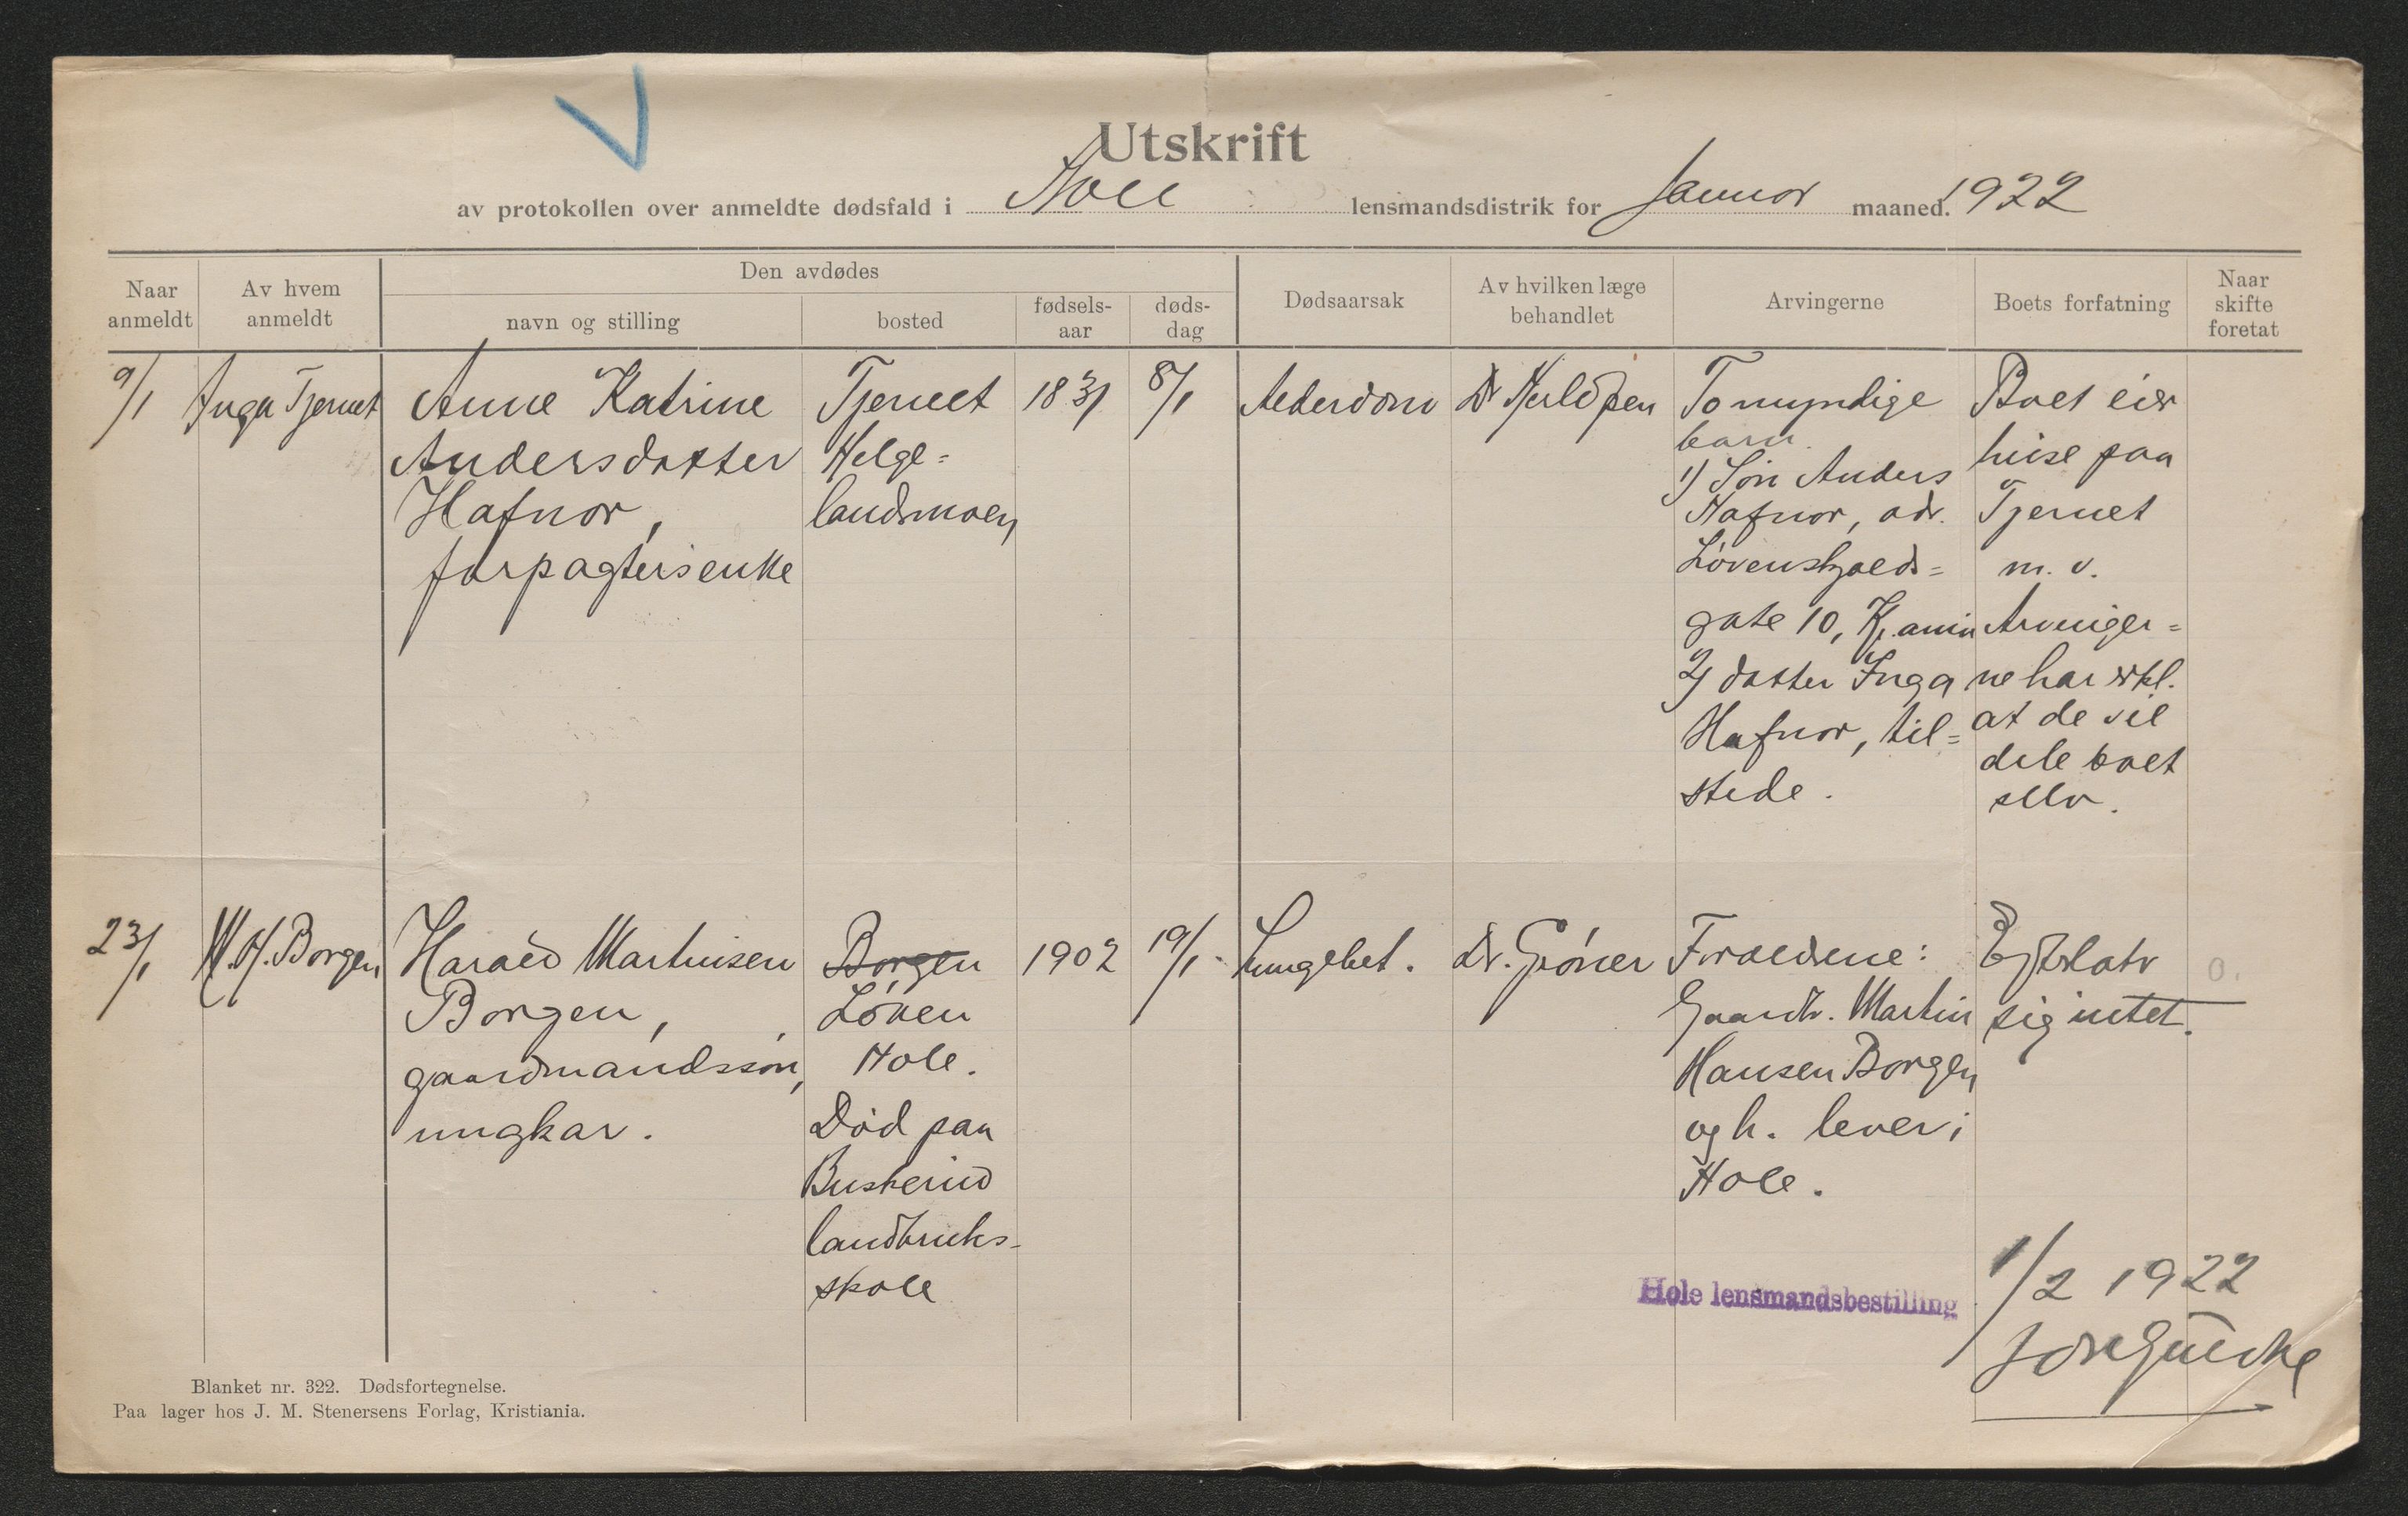 Utskrift
av protokollen over anmeldte dødsfald i Hole lensmandsdistrik for Januar maaned. 1922
Naar anmeldt
Av hvem anmeldt
Den avdødes
navn og stilling
bosted
fødsels-aar
døds-dag
Dødsaarsak
Av hvilken læge behandlet
Arvingerne
Boets forfatning
Naar skifte foretat
9/1
Inga Tjernet
Anne Katrine
Andersdatter
Hafnor,
forpagtersenke
Tjernet
Helge=
landsmoen
1831
8/1
Alderdom
Dr
To myndige
barn.
1) Søn Anders
Hafnor, adr.
Løvenskjolds=
gate 10, Kr.ania
2) datter Inga
Hafnor, til=
stede.
Boet eier
huse paa
Tjernet
m. v.
Arvinger=
ne har erkl.
at de vil
dele boet
selv.
23/1
M. H. Borgen
Harald Martinsen
Borgen,
gaardmandssøn,
ungkar.
Borgen
Løken
Hole.
Død paa
Buskerud
landbruks-
skole
1902
19/1
Lungebet.
Dr. Grøner
Forældrene:
Gaardbr. Martin
Hansen Borgen
og h. lever i
Hole.
Efterlatr
sig intet.
0.
Hole lensmandsbestilling
1/2 1922
Blanket nr. 322. Dødsfortegnelse.
Paa lager hos J. M. Stenersens Forlag, Kristiania.